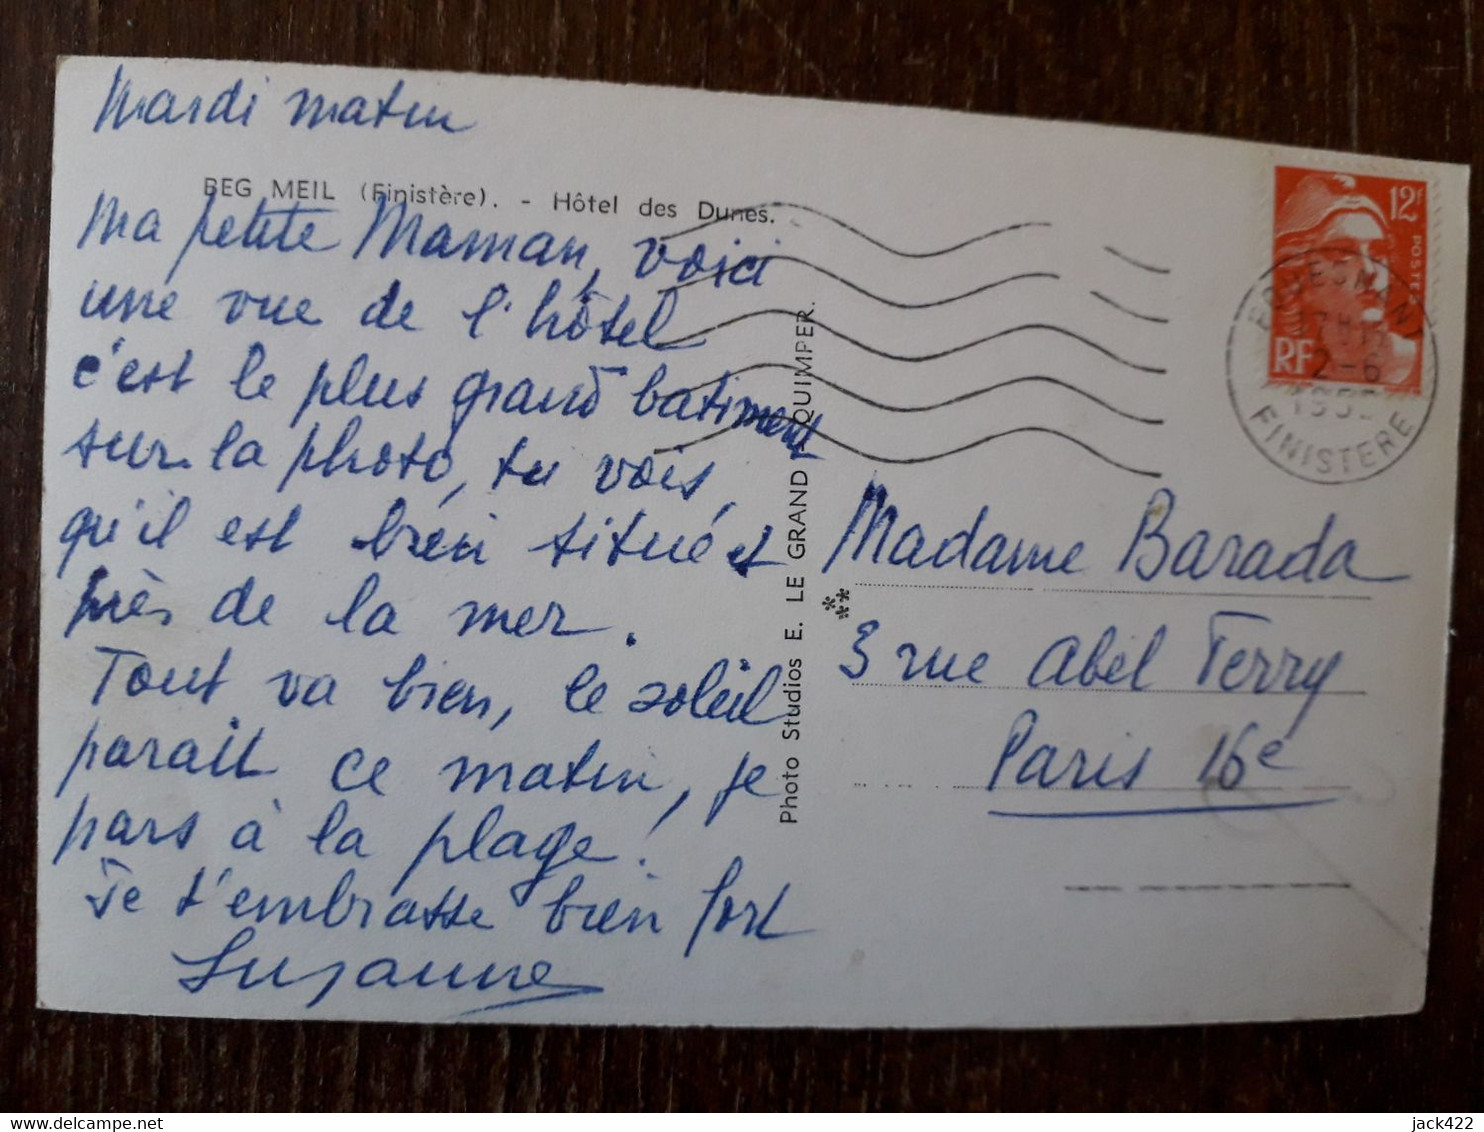 Mardi matin
BEG MEIL (Finistère). - Hôtel des Dunes.
Ma petite Maman, voici
une vue de l'hôtel
c'est le plus grand batiment
sur la photo, tu vois
qu'il est bien situé et
près de la mer.
Tout va bien, le soleil
parait ce matin, je
pars à la plage!
Je t'embrasse bien fort
Suzanne
Photo Studios E. LE GRAND QUIMPER.
12F
POSTES
RF
FOUESNANT
2-6
FINISTERE
Madame Barada
3 rue Abel Ferry
Paris 16e
jack422